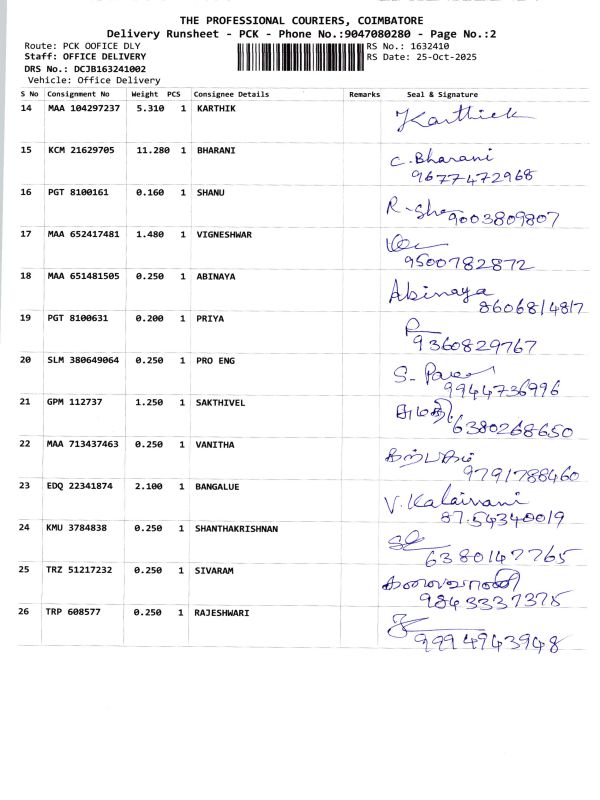 THE PROFESSIONAL COURIERS, COIMBATORE
Delivery Runsheet - PCK - Phone No.:9047080280 - Page No.:2
Route: PCK OOFICE DLY RS No.: 1632410
Staff: OFFICE DELIVERY RS Date: 25-Oct-2025
DRS No.: DCJB163241002
Vehicle: Office Delivery
S No Consignment No Weight PCS Consignee Details Remarks Seal & Signature
14 MAA 104297237 5.310 1 KARTHIK Karthick
15 KCM 21629705 11.280 1 BHARANI C. Bharani
9677472968
16 PGT 8100161 0.160 1 SHANU
9003809807
17 MAA 652417481 1.480 1 VIGNESHWAR
9500782872
18 MAA 651481505 0.250 1 ABINAYA Abinaya
8606814817
19 PGT 8100631 0.200 1 PRIYA
9360829767
20 SLM 380649064 0.250 1 PRO ENG
9944736996
21 GPM 112737 1.250 1 SAKTHIVEL
6380268650
22 MAA 713437463 0.250 1 VANITHA கற்பகம்
9791788460
23 EDQ 22341874 2.100 1 BANGALUE V. Kalaivani
87.54340019
24 KMU 3784838 0.250 1 SHANTHAKRISHNAN
6380147765
25 TRZ 51217232 0.250 1 SIVARAM
9843337375
26 TRP 608577 0.250 1 RAJESHWARI
9994943948